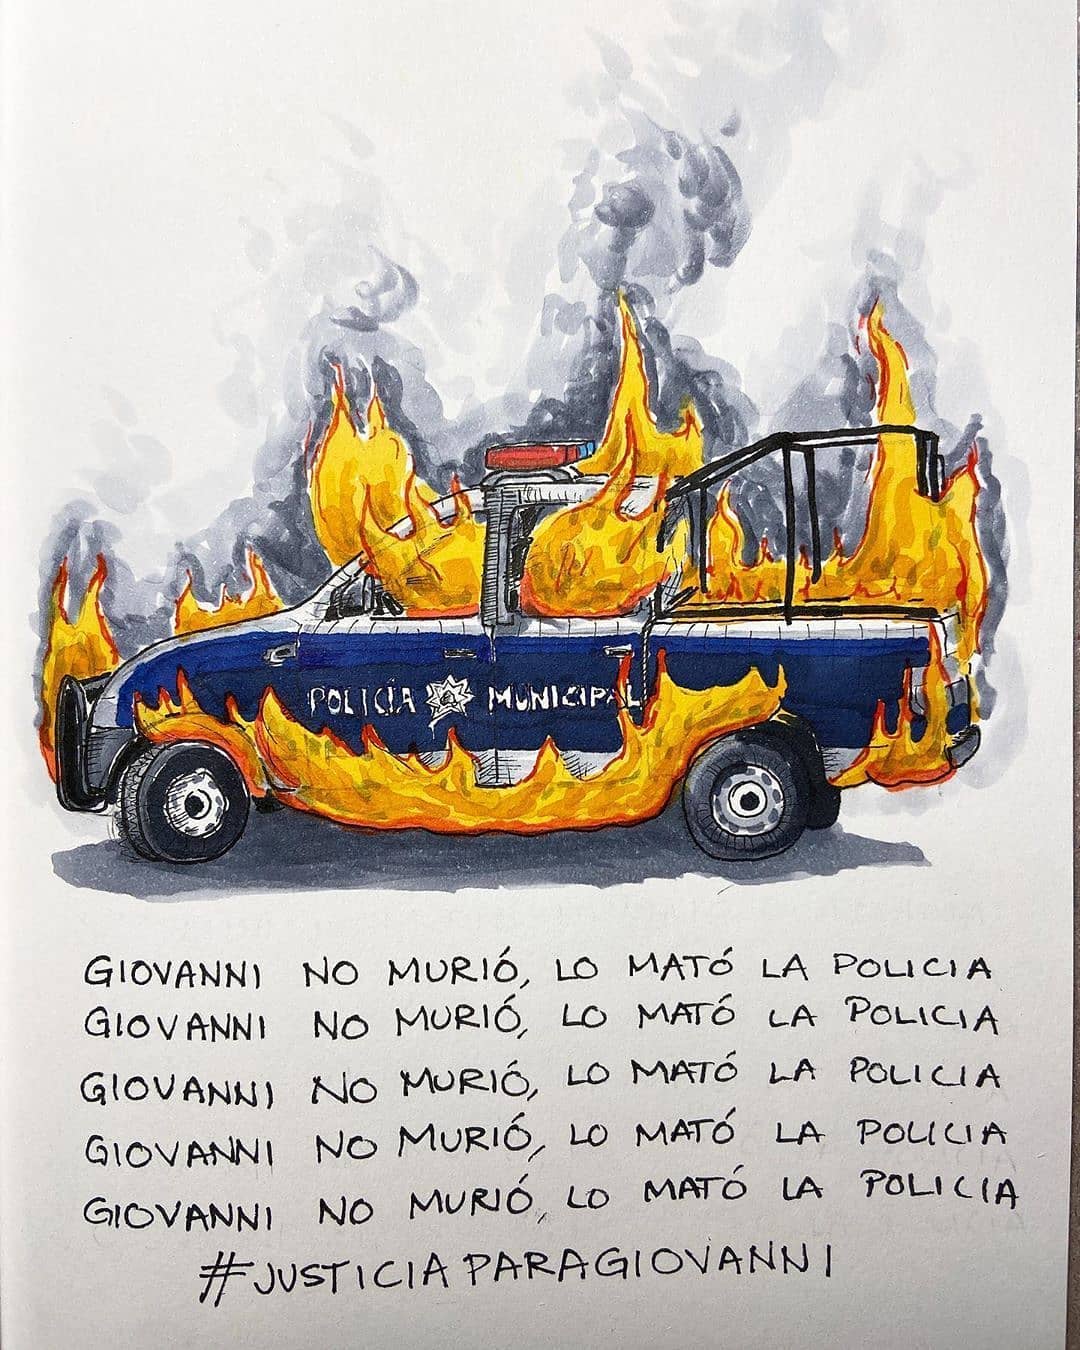 POLICÍA MUNICIPAL
GIOVANNI NO MURIÓ, LO MATÓ LA POLICIA
GIOVANNI NO MURIÓ, LO MATÓ LA POLICIA
GIOVANNI NO MURIÓ, LO MATÓ LA POLICIA
GIOVANNI NO MURIÓ, LO MATÓ LA POLICIA
GIOVANNI NO MURIÓ, LO MATÓ LA POLICIA
#JUSTICIAPARAGIOVANNI